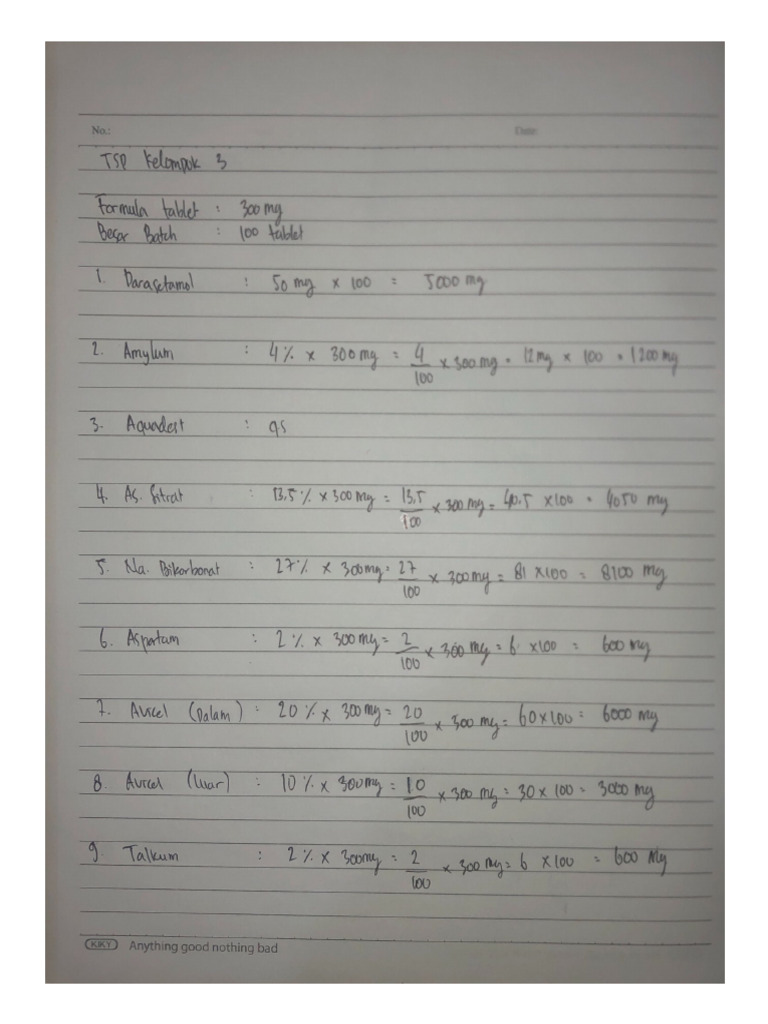 No.: Date:
TSP Kelompok 3
Formula tablet : 300 mg
Besar Batch : 100 tablet
1. Parasetamol : 50 mg x 100 = 5000 mg
2. Amylum : 4% x 300 mg = 4/100 x 300 mg = 12 mg x 100 = 1200 mg
3. Aquadest : qs
4. As. Sitrat : 13,5% x 300 mg = 13,5/100 x 300 mg = 40,5 x 100 = 4050 mg
5. Na. Bikarbonat : 27% x 300 mg = 27/100 x 300 mg = 81 x 100 = 8100 mg
6. Aspartam : 2% x 300 mg = 2/100 x 300 mg = 6 x 100 = 600 mg
7. Avicel (Dalam) : 20% x 300 mg = 20/100 x 300 mg = 60 x 100 = 6000 mg
8. Avicel (luar) : 10% x 300 mg = 10/100 x 300 mg = 30 x 100 = 3000 mg
9. Talkum : 2% x 300 mg = 2/100 x 300 mg = 6 x 100 = 600 Mg
KIKY Anything good nothing bad